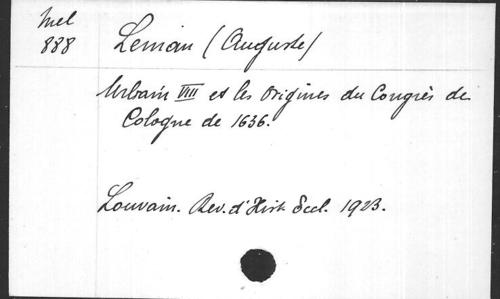 Mel
888
Leman (Auguste)
Urbain VIII et les origines du Congrès de
Cologne de 1636.
Louvain. Rev. d'Hist. Eccl. 1923.